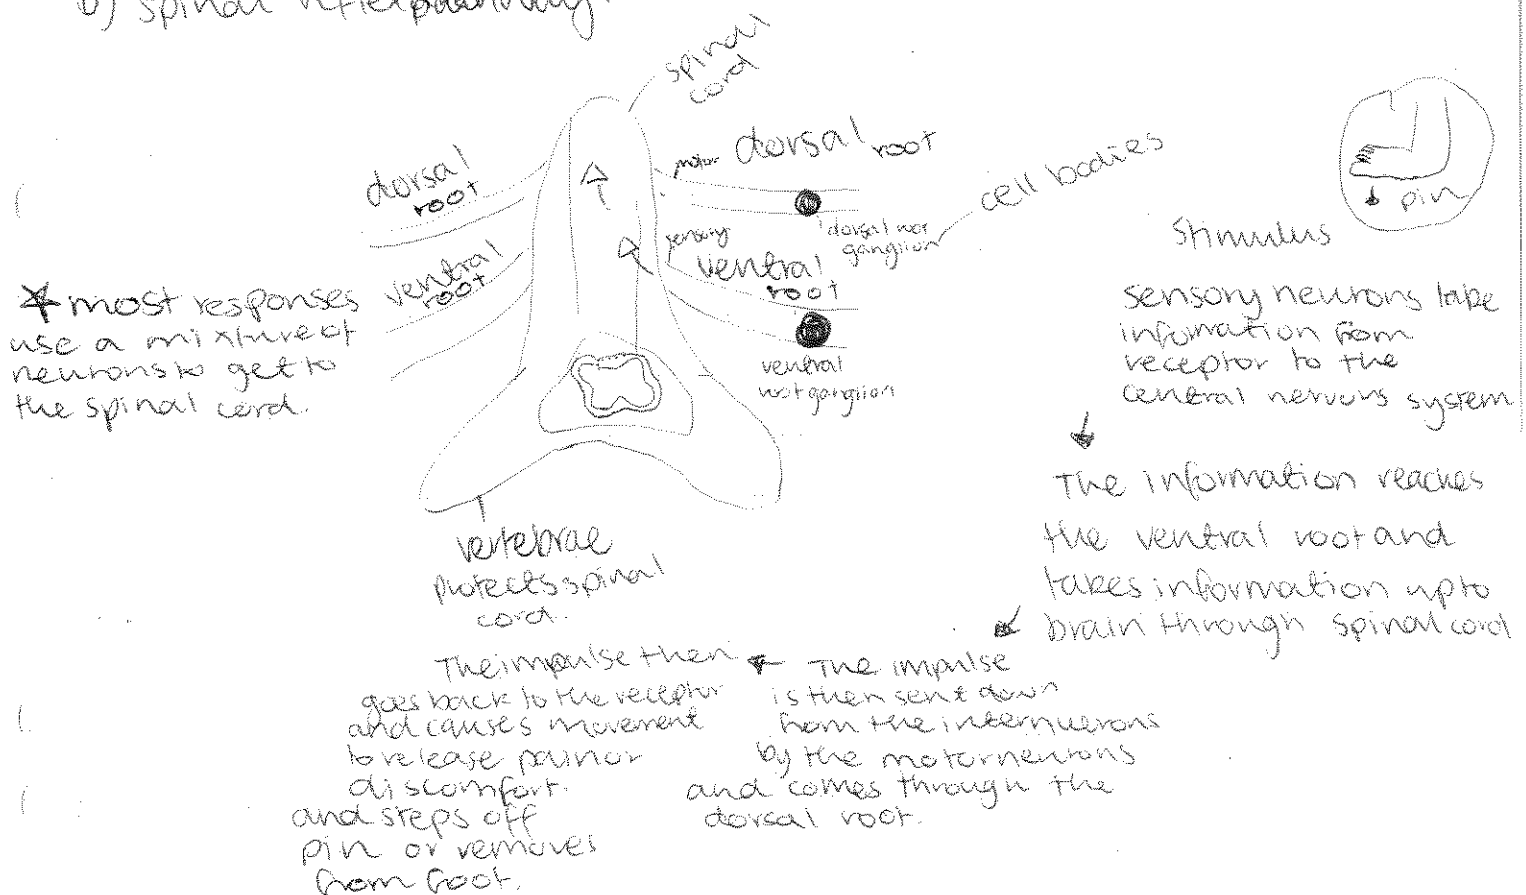 b) spinal reflex pathway.
spinal
cord
dorsal
root
motor
dorsal root
cell bodies
dorsal root
ganglion
sensory
ventral
root
ventral
root
ventral
root ganglion
* most responses
use a mixture of
neurons to get to
the spinal cord.
vertebrae
protects spinal
cord.
pin
Stimulus
sensory neurons take
information from
receptor to the
central nervous system
The information reaches
the ventral root and
takes information up to
brain through spinal cord
The impulse
is then sent down
from the internuerons
by the motor neurons
and comes through the
dorsal root.
The impulse then
goes back to the receptor
and causes movement
to release pain or
discomfort.
and steps off
pin or removes
from foot.